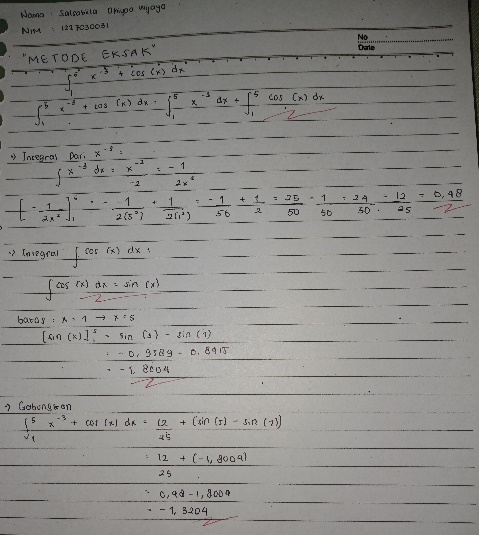 Nama : Salsabila Dhiyaa Wijaya
NIM : 1227030031
No
Date
"METODE EKSAK"
∫₁⁵ x⁻³ + cos (x) dx
∫₁⁵ x⁻³ + cos (x) dx = ∫₁⁵ x⁻³ dx + ∫₁⁵ cos (x) dx
→ Integral Dari x⁻³ :
∫ x⁻³ dx = x⁻²/-2 = -1/2x²
[-1/2x²]₁⁵ = -1/2(5²) + 1/2(1²) = -1/50 + 1/2 = 25/50 - 1/50 = 24/50 = 12/25 = 0,48
→ Integral ∫ cos (x) dx :
∫ cos (x) dx = sin (x)
batas : x = 1 → x = 5
[sin (x)]₁⁵ = sin (5) - sin (1)
= -0,9589 - 0,8415
= -1,8004
→ Gabungkan
∫₁⁵ x⁻³ + cos (x) dx = 12/25 + (sin (5) - sin (1))
= 12/25 + (-1,8004)
= 0,48 - 1,8004
= -1,3204